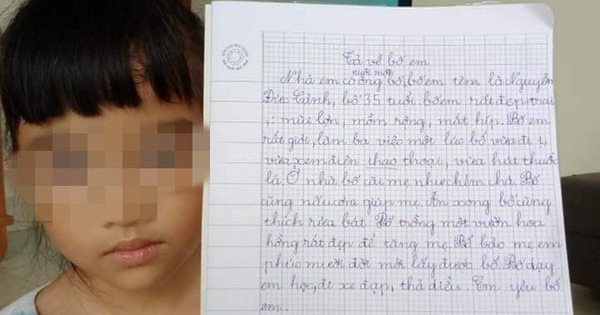 Tả về bố em
nuôi một
Nhà em có ông bố, bố em tên là Nguyễn
Đức Cảnh, bố 35 tuổi bố em rất đẹp trai
: mũi lớn, mồm rộng, mắt híp. Bố em
rất giỏi, làm ba việc một lúc bố vừa đi ị,
vừa xem điện thao thoại, vừa hút thuốc
lá. Ở nhà bố cãi mẹ như chém chả. Bố
cũng nấu cơm giúp mẹ. Ăn xong bố cũng
thích rửa bát. Bố trồng một vườn hoa
hồng rất đẹp để tặng mẹ. Bố bảo mẹ em
phúc mười đời mới lấy được bố. Bố dạy
em học, đi xe đạp, thả diều. Em yêu bố
em.